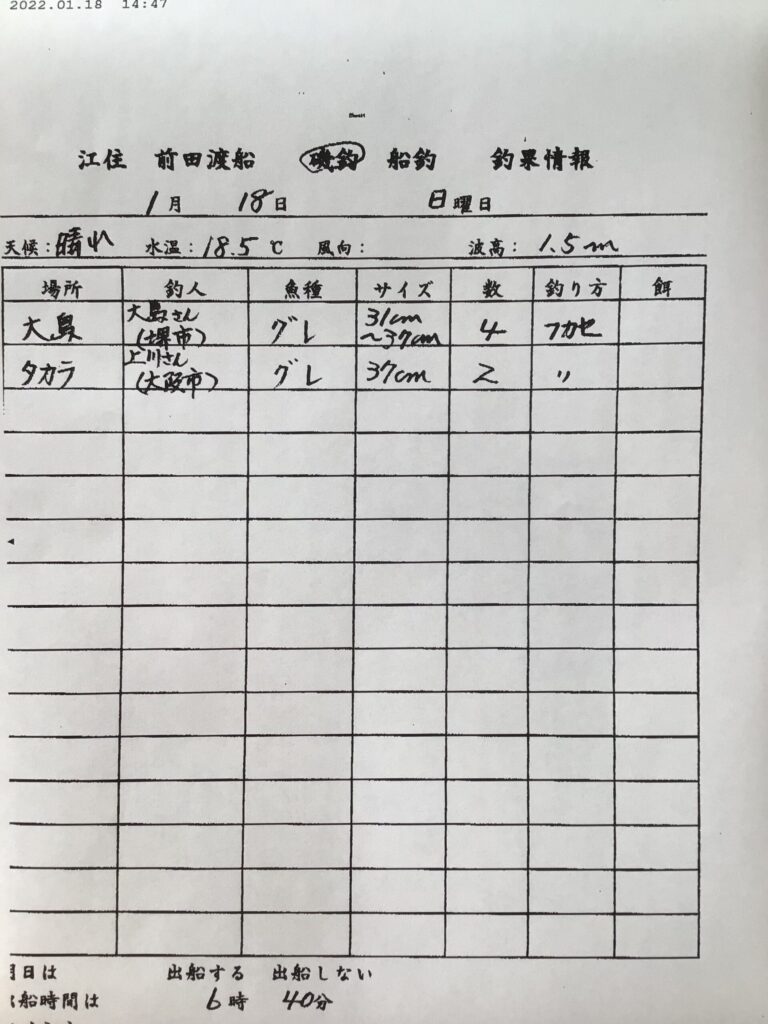 2022.01.18 14:47
江住 前田渡船 磯釣 船釣 釣果情報
1月 18日 日曜日
天候:晴れ 水温:18.5℃ 風向: 波高: 1.5m
場所 釣人 魚種 サイズ 数 釣り方 餌
大島 大島さん (堺市) グレ 31cm ~37cm 4 フカセ
タカラ 上川さん (大阪市) グレ 37cm 2 〃
日は 出船する 出船しない
船時間は 6時 40分